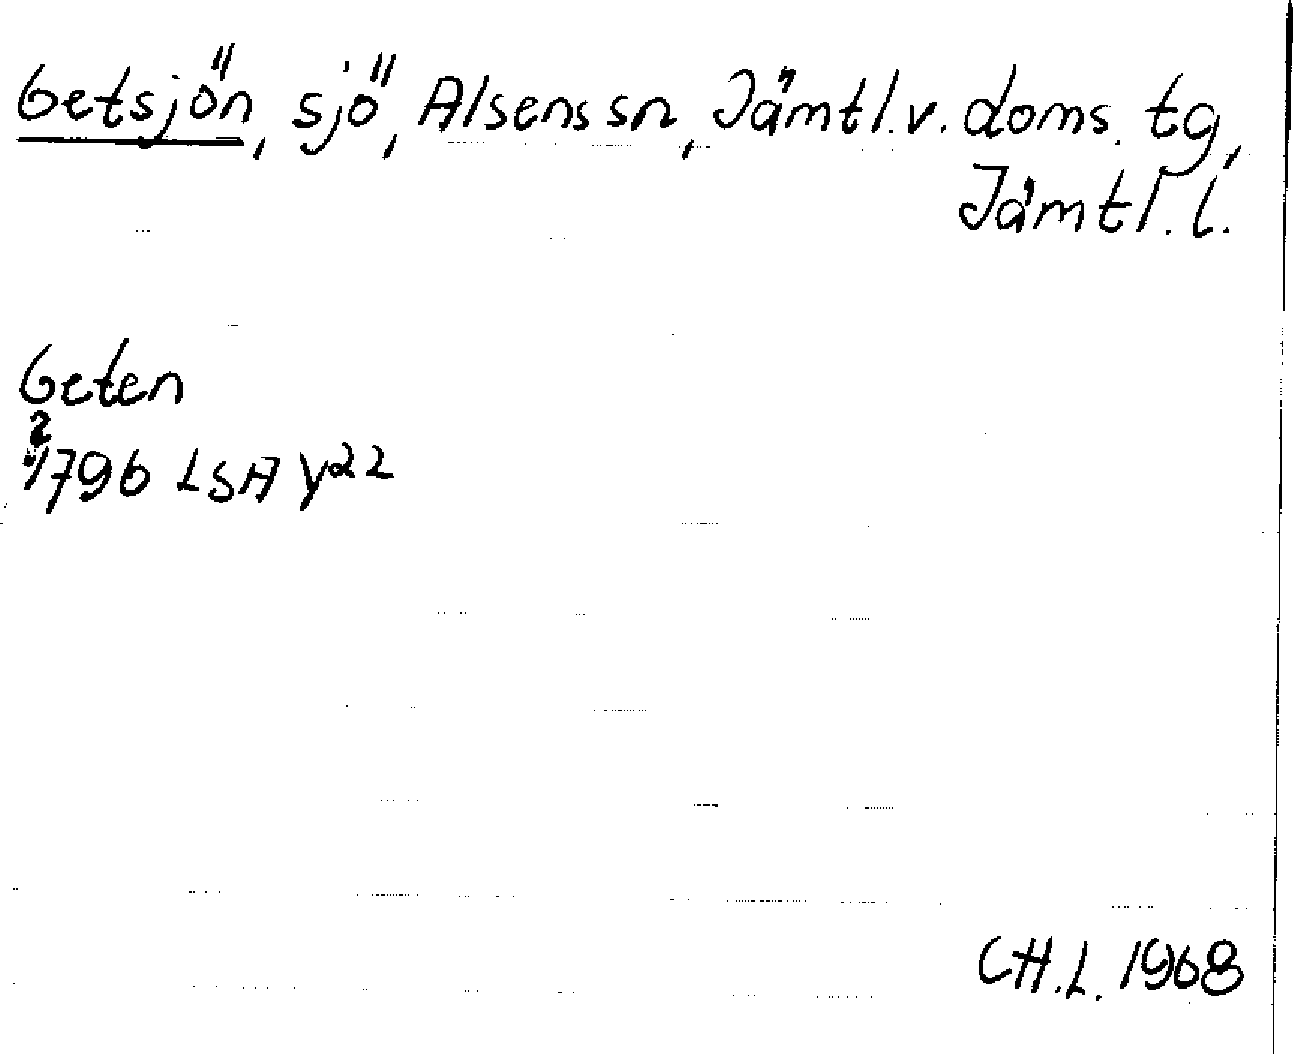 Getsjön, sjö, Alsens sn, Jämtl. v. doms. tg,
Jämtl. l.
Geten
1796 LSA Y22
CH.L. 1968